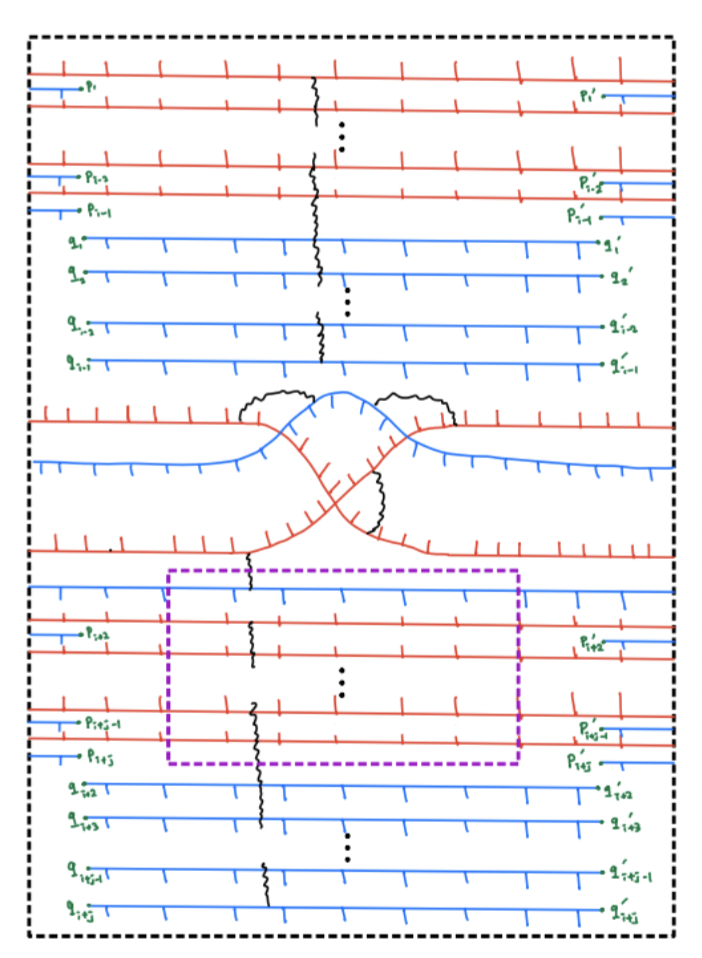 P₁ P₁′
⋮
Pᵢ₋₂ Pᵢ₋₂′
Pᵢ₋₁ Pᵢ₋₁′
q₁ q₁′
q₂ q₂′
⋮
qᵢ₋₂ q′ᵢ₋₂
qᵢ₋₁ q′ᵢ₋₁
Pᵢ₊₂ Pᵢ₊₂′
⋮
Pᵢ₊ⱼ₋₁ P′ᵢ₊ⱼ₋₁
Pᵢ₊ⱼ P′ᵢ₊ⱼ
qᵢ₊₂ q′ᵢ₊₂
qᵢ₊₃ q′ᵢ₊₃
⋮
qᵢ₊ⱼ₋₁ q′ᵢ₊ⱼ₋₁
qᵢ₊ⱼ q′ᵢ₊ⱼ